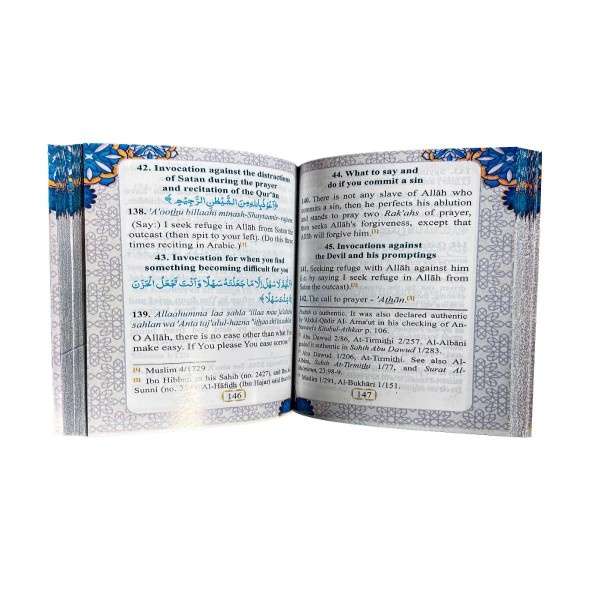 42. Invocation against the distractions
of Satan during the prayer
and recitation of the Qur'ân
﴿أَعُوذُ بِاللهِ مِنَ الشَّيْطَنِ الرَّجِيْمِ﴾
138. 'A'oothu billaahi minash-Shaytaanir-rajeem
(Say:) I seek refuge in Allâh from Satan the
outcast (then spit to your left). (Do this three
times reciting in Arabic.)
43. Invocation for when you find
something becoming difficult for you
اللَّهُمَّ لَا سَهْلَ إِلَّا مَا جَعَلْتَهُ سَهْلًا وَأَنْتَ تَجْعَلُ الْحَزْنَ
139. Allaahumma laa sahla 'illaa maa ja'altahu
sahlan wa 'Anta taj'alul-hazna
O Allâh, there is no ease other than what You
make easy. If You please You ease sorrow
Muslim 4/1729
Ibn Hibban in his Sahih (no. 2427), and Ibn
Sunni (no. Al-Hâfidh (Ibn Hajar) said
146
44. What to say and
do if you commit a sin
140. There is not any slave of Allâh who
commits a sin, then he perfects his ablution
and stands to pray two Rak'ahs of prayer,
then seeks Allâh's forgiveness, except that
Allâh will forgive him.[1]
45. Invocations against
the Devil and his promptings
141. Seeking refuge with Allâh against him
(i.e. by saying I seek refuge in Allâh from
Satan the outcast).[2]
142. The call to prayer - 'Athân.[3]
hadith is authentic. It was also declared authentic
by 'Abdul-Qâdir Al- Arna'ut in his checking of An-
Kitabul-Athkar p. 106.
Abu Dawud 2/86, At-Tirmithi 2/257. Al-Albâni
it authentic in Sahih Abu Dawud 1/283.
Abu Dawud 1/206, At-Tirmithi. See also Al-
Albâni, Sahih At-Tirmithi 1/77, and Surat Al-
23:98-9.
Muslim 1/291, Al-Bukhâri 1/151.
147